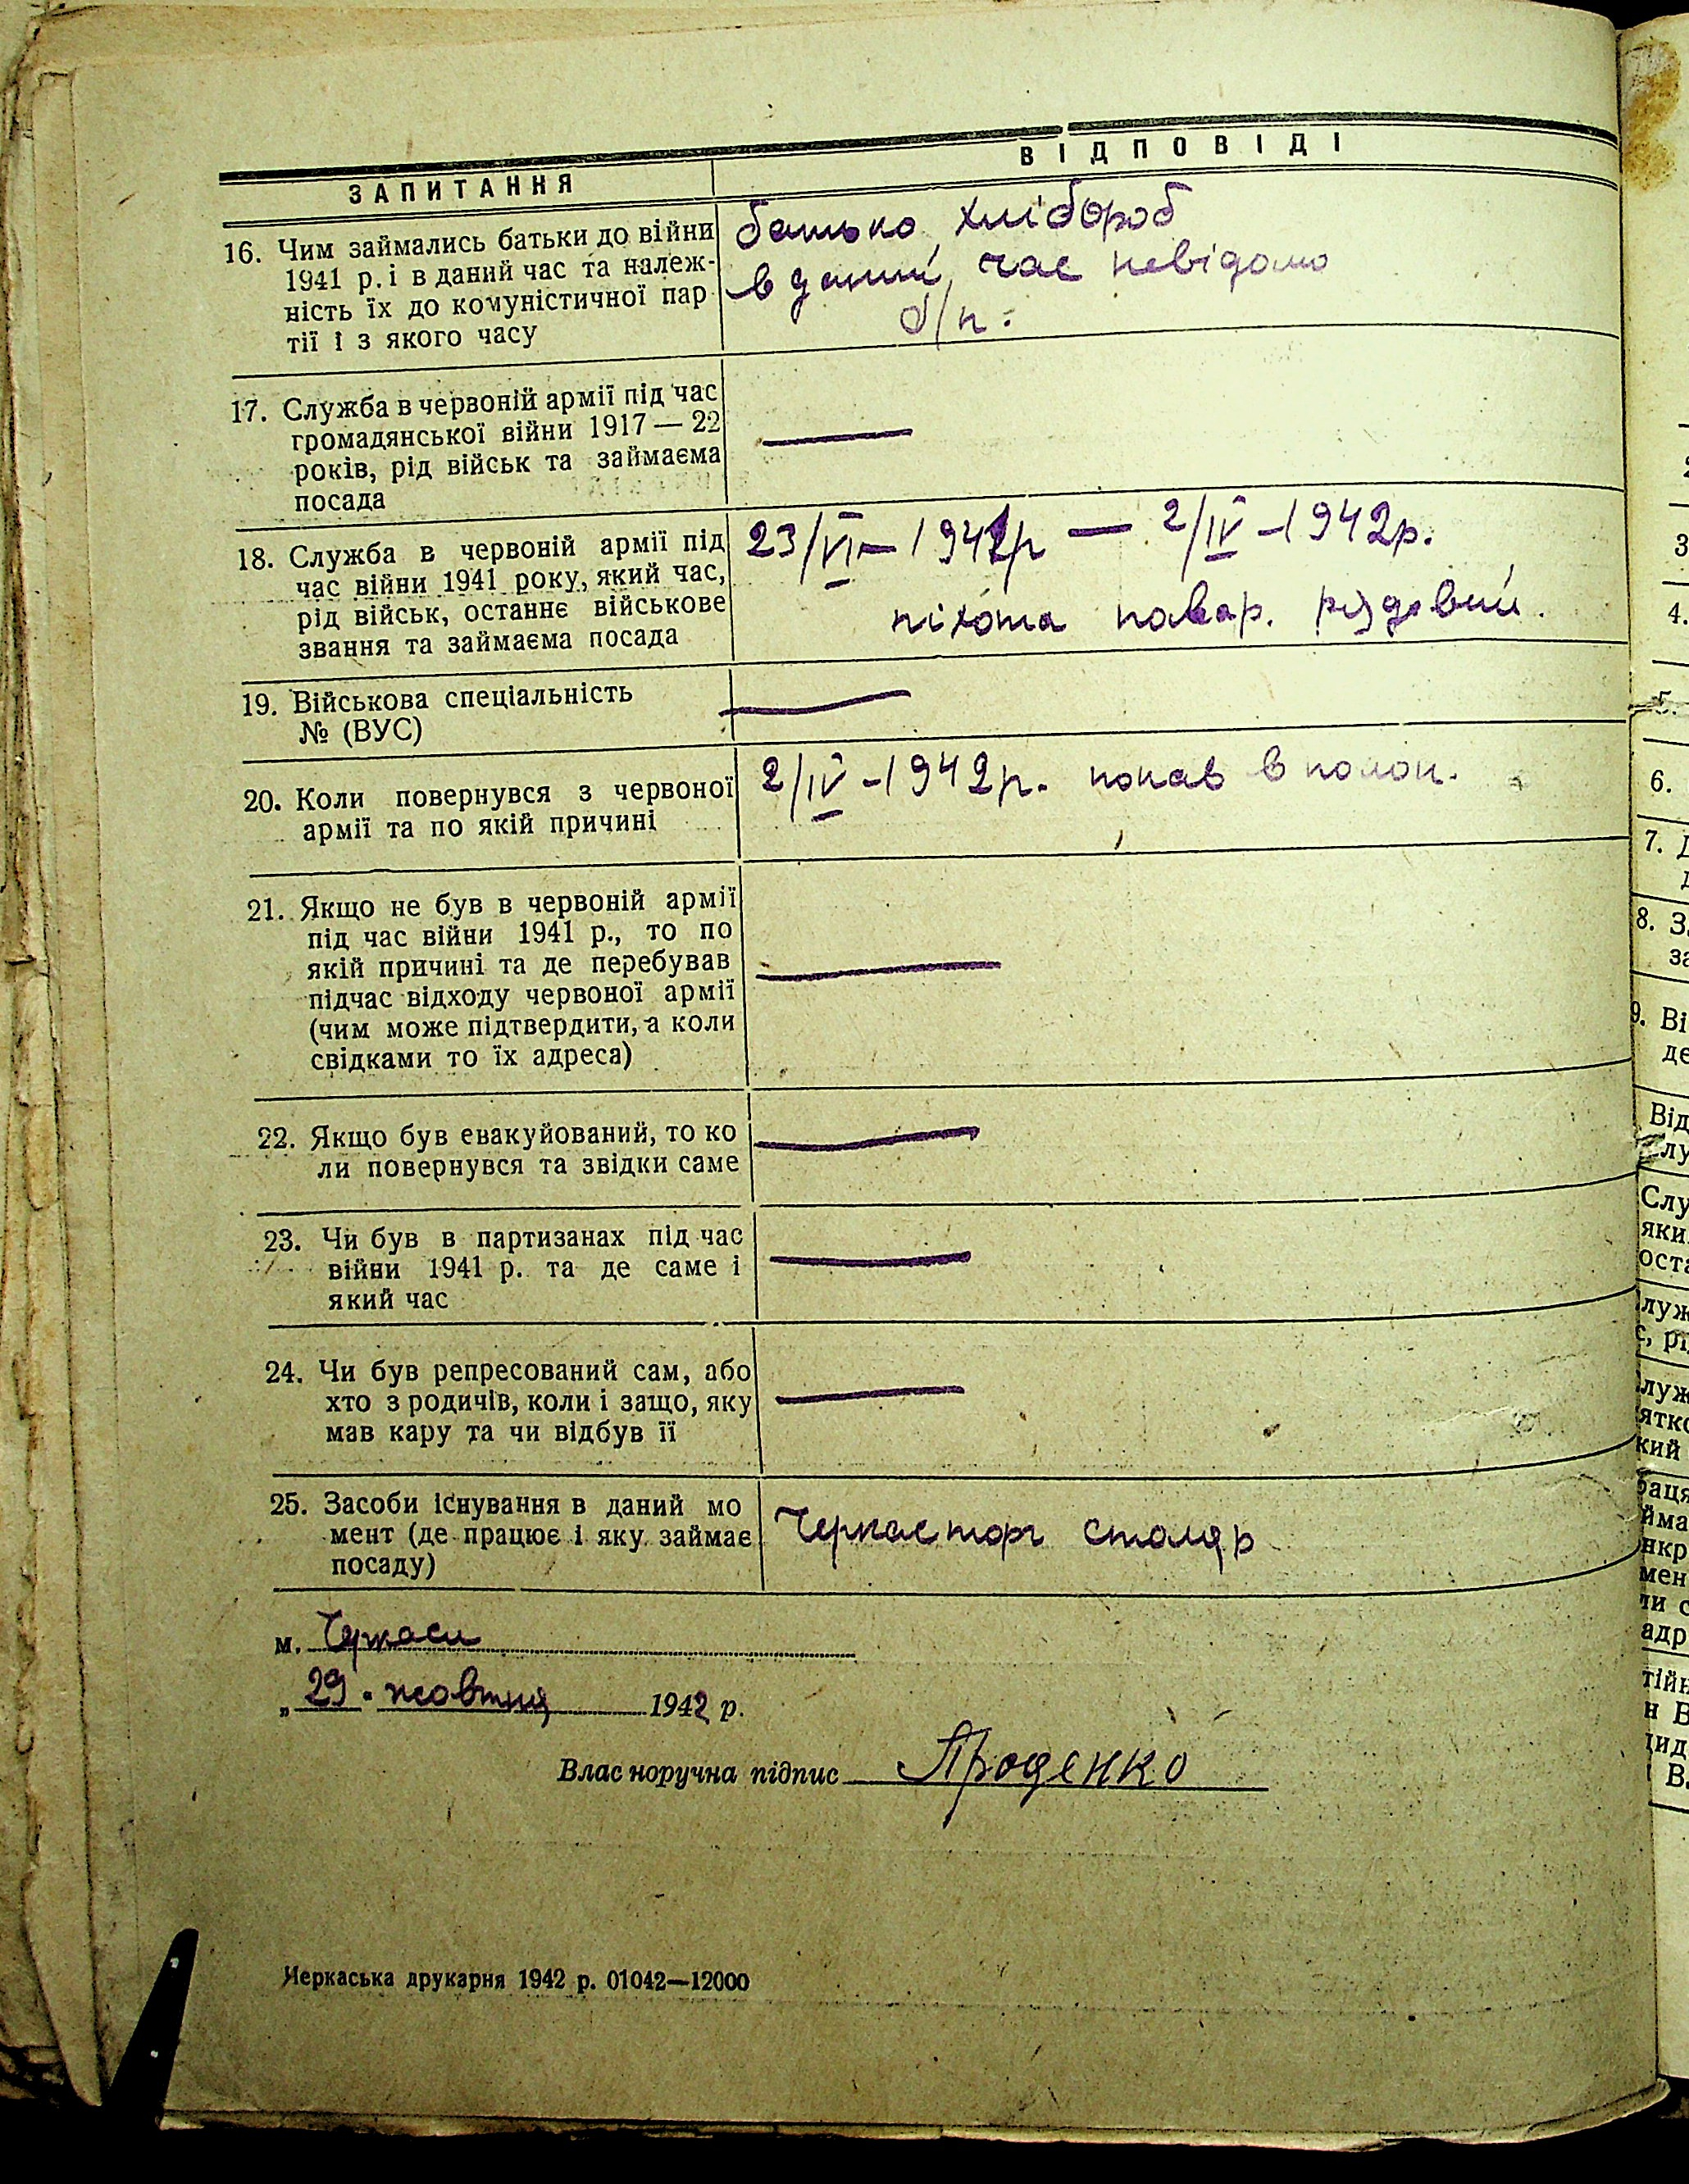 ЗАПИТАННЯ
ВІДПОВІДІ
16. Чим займались батьки до війни
1941 р. і в даний час та належ-
ність їх до комуністичної пар
тії і з якого часу
батько хлібороб
в даний час невідомо
б/п.
17. Служба в червоній армії під час
громадянської війни 1917 — 22
років, рід військ та займаєма
посада
18. Служба в червоній армії під
час війни 1941 року, який час,
рід військ, останнє військове
звання та займаєма посада
23/VI – 1941р — 2/IV – 1942р.
піхота повар. рядовий.
19. Військова спеціальність
№ (ВУС)
20. Коли повернувся з червоної
армії та по якій причині
2/IV – 1942р. попав в полон.
21. Якщо не був в червоній армії
під час війни 1941 р., то по
якій причині та де перебував
підчас відходу червоної армії
(чим може підтвердити, а коли
свідками то їх адреса)
22. Якщо був евакуйований, то ко
ли повернувся та звідки саме
23. Чи був в партизанах під час
війни 1941 р. та де саме і
який час
24. Чи був репресований сам, або
хто з родичів, коли і защо, яку
мав кару та чи відбув її
25. Засоби існування в даний мо
мент (де працює і яку займає
посаду)
Черкасторг столяр
м. Черкаси
„ 29 " жовтня 1942 р.
Влас норучна підпис Проденко
Черкаська друкарня 1942 р. 01042—12000